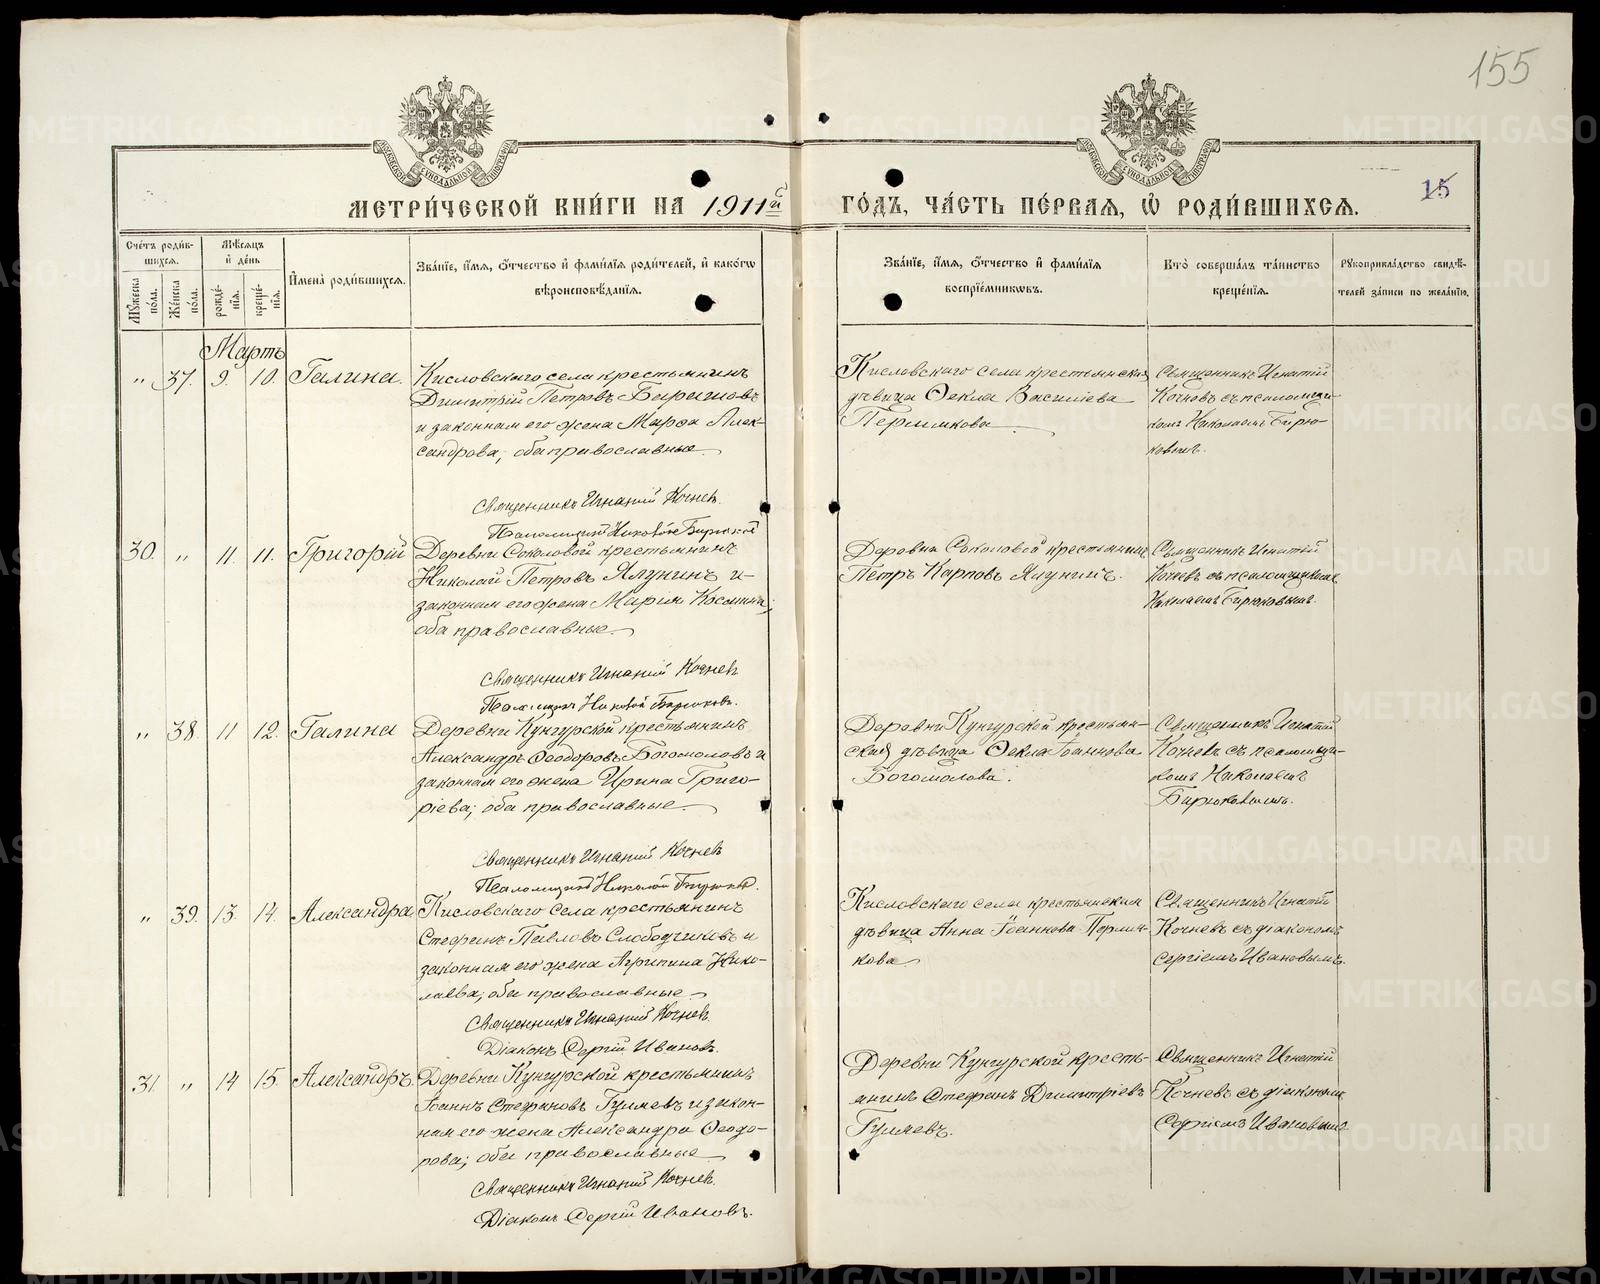 155
МОСКОВСКОЙ СѴНОДАЛЬНОЙ ТИПОГРАФІИ
МОСКОВСКОЙ СѴНОДАЛЬНОЙ ТИПОГРАФІИ
15
МЕТРИ́ЧЕСКОЙ КНИ́ГИ НА 1911й ГО́ДЪ, ЧА́СТЬ ПЕ́РВАЯ, Ѡ РОДИ́ВШИХСЯ.
Счётъ роди́вшихся.
Мѣ́сяцъ и де́нь
Мꙋ́жеска по́ла.
Же́нска по́ла.
рожде́нїя.
креще́нїя.
И҆мена̀ роди́вшихся.
Зва́нїе, и҆́мя, ѻ҆́тчество и҆ фами́лїя роди́телей, и҆ како́гѡ
вѣроисповѣ́данїя.
Зва́нїе, и҆́мя, ѻ҆́тчество и҆ фами́лїя
воспрїе́мникѡвъ.
Кто̀ соверша́лъ та́инство
креще́нїя.
Рꙋкоприкла́дство свидѣ́-
телей за́писи по жела́нїю.
Мартъ
„ 37. 9. 10. Галина.
Кисловскаго села крестьянинъ
Димитрій Петровъ
и законная его жена Марѳа Алек-
сандрова; оба православные
Священникъ Игнатій Кочнев
Псаломщикъ Николай
Кисловскаго села крестьянская
дѣвица Ѳекла Василіева
Пермикова
Священникъ Игнатій
Кочневъ съ псаломщи-
комъ Николаемъ Бирю-
ковымъ.
30. „ 11. 11. Григорій
Деревни Соколовой крестьянинъ
Николай Петровъ Ялунинъ и
законная его жена Марія Косьмина;
оба православные
Священникъ Игнатій Кочнев
Псаломщикъ Николай Бирюковъ.
Деревни Соколовой крестьянинъ
Петръ Карповъ Ялунинъ.
Священникъ Игнатій
Кочневъ съ псаломщикомъ
Николаемъ Бирюковымъ.
„ 38. 11 12. Галина
Деревни Кунгурской крестьянинъ
Александръ Ѳеодоровъ Богомоловъ и
законная его жена Ирина Григо-
ріева; оба православные
Священникъ Игнатій Кочнев
Псаломщикъ Николай
Деревни Кунгурской крестьян-
ская дѣвица Ѳекла Іоаннова
Богомолова.
Священникъ Игнатій
Кочневъ съ псаломщи-
комъ Николаемъ
Бирюковымъ.
„ 39. 13. 14. Александра
Кисловскаго села крестьянинъ
Стефанъ Павловъ Слободчиковъ и
законная его жена Агрипина Нико-
лаева; оба православные
Священникъ Игнатій Кочнев
Діаконъ Сергій Иванов.
Кисловскаго села крестьянская
дѣвица Анна Іоаннова Перми-
кова
Священникъ Игнатій
Кочневъ съ діакономъ
Сергіемъ Ивановымъ.
31 „ 14 15. Александръ
Деревни Кунгурской крестьянинъ
Іоаннъ Стефановъ Гуляевъ и закон-
ная его жена Александра Ѳеодо-
рова; оба православные
Священникъ Игнатій Кочнев
Діаконъ Сергій Ивановъ.
Деревни Кунгурской кресть-
янинъ Стефанъ Димитріевъ
Гуляевъ.
Священникъ Игнатій
Кочневъ съ діакономъ
Сергіемъ Ивановымъ
METRIKI.GASO-URAL.RU